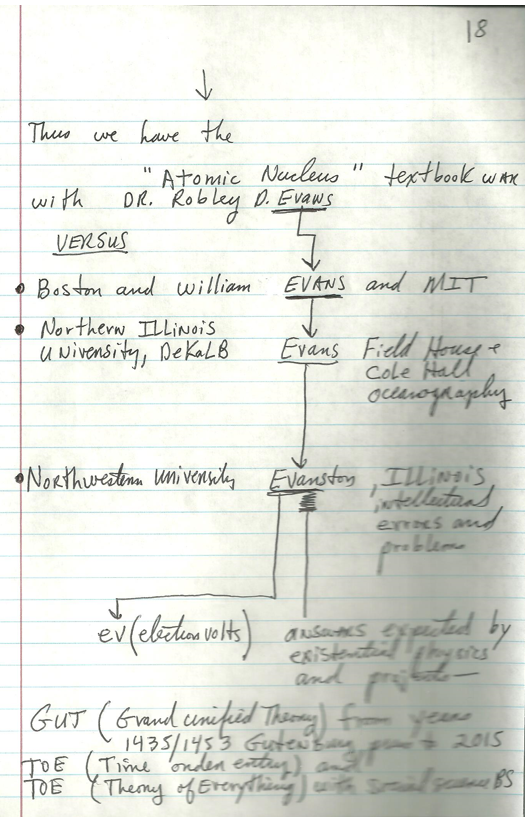 18
Thus we have the
"Atomic Nucleus" textbook WAR
with DR. Robley D. Evans
VERSUS
• Boston and William EVANS and MIT
• Northern ILLINOIS
UNIVERSITY, DeKALB Evans Field House +
Cole Hall
oceanography
• Northwestern University Evanston, ILLINOIS,
intellectual
errors and
problem
ev (electron volts) answers expected by
existential physics
and projects—
GUT (Grand Unified Theory) from years
1435/1453 Gutenburg to 2015
TOE (Time order entry) and
TOE (Theory of Everything) with social science BS